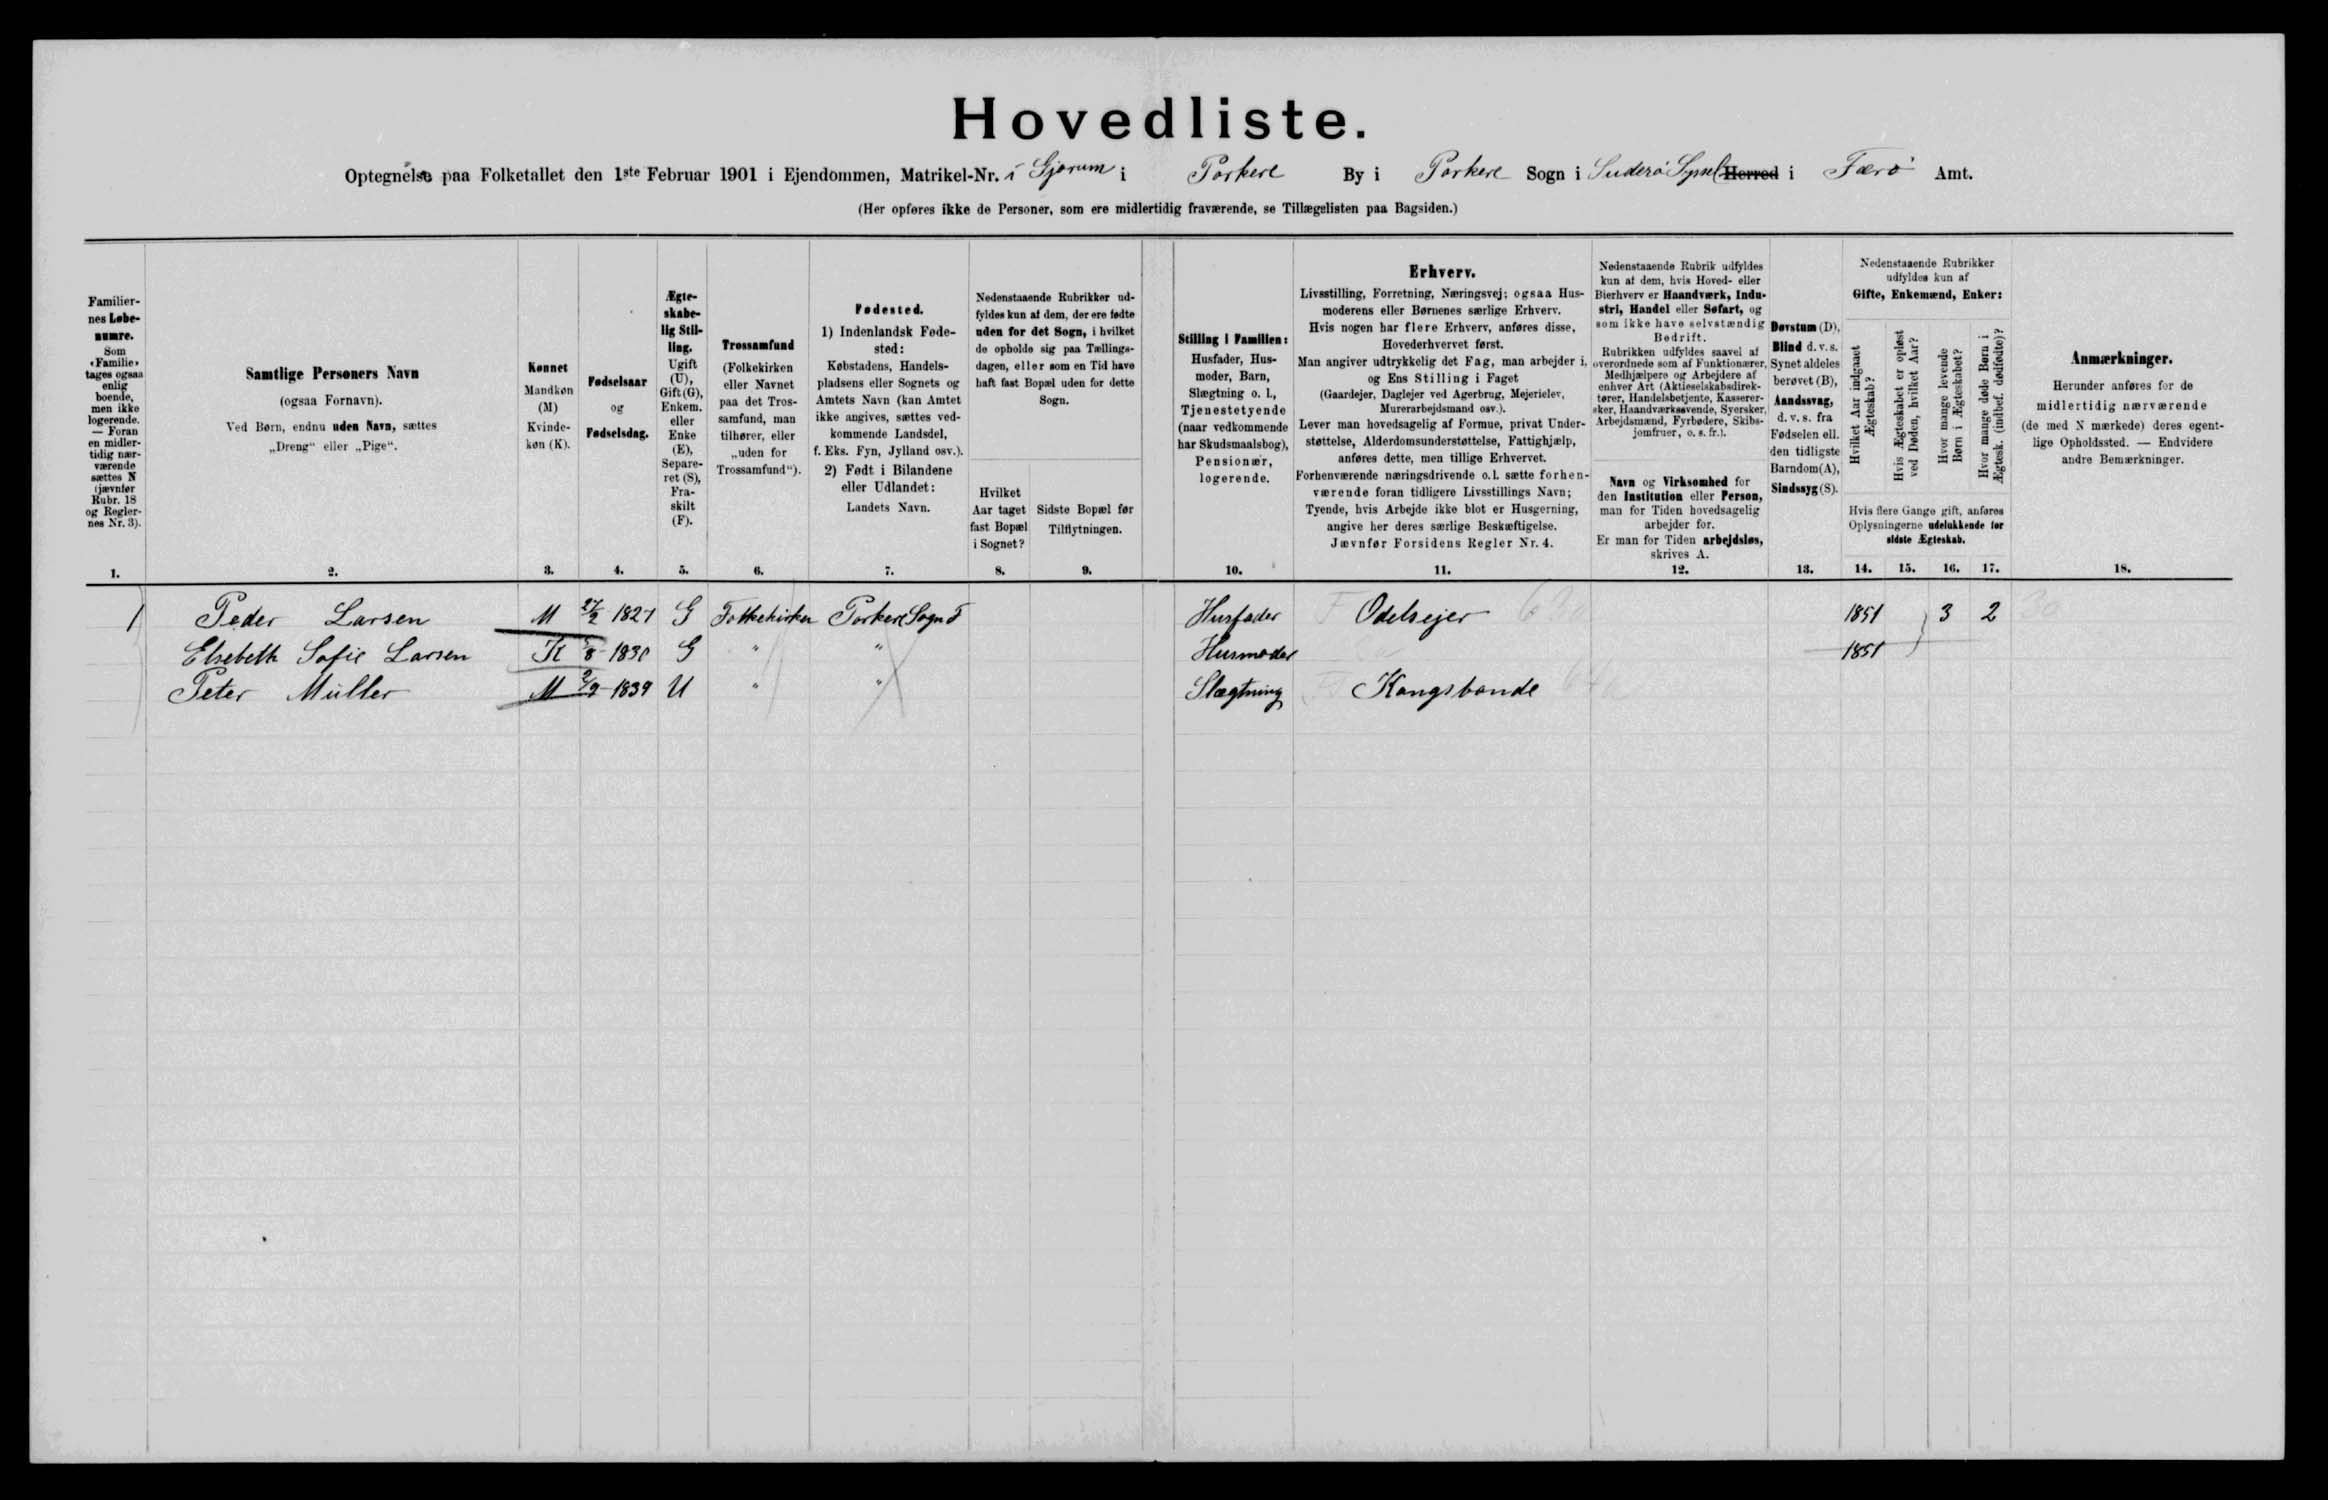 Hovedliste.
Optegnelse paa Folketallet den 1ste Februar 1901 i Ejendommen, Matrikel-Nr. i Gjørum i Porkere By i Porkere Sogn i Suderø Syssel Herred i Færø Amt.
(Her opføres ikke de Personer, som ere midlertidig fraværende, se Tillægslisten paa Bagsiden.)
Familiernes Løbenumre.
Som
«Familie»
tages ogsaa
enlig
boende,
men ikke
logerende.
— Foran
en midler-
tidig nær-
værende
sættes N
(jævnfør
Rubr. 18
og Regler-
nes Nr. 3).
1.
Samtlige Personers Navn
(ogsaa Fornavn).
Ved Børn, endnu uden Navn, sættes
„Dreng“ eller „Pige“.
2.
Kønnet
Mandkøn
(M)
Kvinde-
køn (K).
3.
Fødselsaar
og
Fødselsdag.
4.
Ægte-
skabe-
lig Stil-
ling.
Ugift
(U),
Gift (G),
Enkem.
eller
Enke
(E),
Separe-
ret (S),
Fra-
skilt
(F).
5.
Trossamfund
(Folkekirken
eller Navnet
paa det Tros-
samfund, man
tilhører, eller
„uden for
Trossamfund“).
6.
Fødested.
1) Indenlandsk Føde-
sted:
Købstadens, Handels-
pladsens eller Sognets og
Amtets Navn (kan Amtet
ikke angives, sættes ved-
kommende Landsdel,
f. Eks. Fyn, Jylland osv.).
2) Født i Bilandene
eller Udlandet:
Landets Navn.
7.
Nedenstaaende Rubrikker ud-
fyldes kun af dem, der ere fødte
uden for det Sogn, i hvilket
de opholde sig paa Tællings-
dagen, eller som en Tid have
haft fast Bopæl uden for dette
Sogn.
Hvilket
Aar taget
fast Bopæl
i Sognet?
8.
Sidste Bopæl før
Tilflytningen.
9.
Stilling i Familien:
Husfader, Hus-
moder, Barn,
Slægtning o. l.,
Tjenestetyende
(naar vedkommende
har Skudsmaalsbog),
Pensionær,
logerende.
10.
Erhverv.
Livsstilling, Forretning, Næringsvej; ogsaa Hus-
moderens eller Børnenes særlige Erhverv.
Hvis nogen har flere Erhverv, anføres disse,
Hovederhvervet først.
Man angiver udtrykkelig det Fag, man arbejder i,
og Ens Stilling i Faget
(Gaardejer, Daglejer ved Agerbrug, Mejerielev,
Murerarbejdsmand osv.).
Lever man hovedsagelig af Formue, privat Under-
støttelse, Alderdomsunderstøttelse, Fattighjælp,
anføres dette, men tillige Erhvervet.
Forhenværende næringsdrivende o. l. sætte forhen-
værende foran tidligere Livsstillings Navn;
Tyende, hvis Arbejde ikke blot er Husgerning,
angive her deres særlige Beskæftigelse.
Jævnfør Forsidens Regler Nr. 4.
11.
Nedenstaaende Rubrik udfyldes
kun af dem, hvis Hoved- eller
Bierhverv er Haandværk, Indu-
stri, Handel eller Søfart, og
som ikke have selvstændig
Bedrift.
Rubrikken udfyldes saavel af
overordnede som af Funktionærer,
Medhjælpere og Arbejdere af
enhver Art (Aktieselskabsdirek-
tører, Handelsbetjente, Kasserer-
sker, Haandværkssvende, Syersker,
Arbejdsmænd, Fyrbødere, Skibs-
jomfruer, o. s. fr.).
Navn og Virksomhed for
den Institution eller Person,
man for Tiden hovedsagelig
arbejder for.
Er man for Tiden arbejdsløs,
skrives A.
12.
Døvstum (D),
Blind d. v. s.
Synet aldeles
berøvet (B),
Aandssvag,
d. v. s. fra
Fødselen ell.
den tidligste
Barndom (A),
Sindssyg (S).
13.
Nedenstaaende Rubrikker
udfyldes kun af
Gifte, Enkemænd, Enker:
Hvilket Aar indgaaet
Ægteskab?
Hvis Ægteskabet er opløst
ved Døden, hvilket Aar?
Hvor mange levende
Børn i Ægteskabet?
Hvor mange døde Børn i
Ægtesk. (indbef. dødfødte)?
Hvis flere Gange gift, anføres
Oplysningerne udelukkende for
sidste Ægteskab.
14. 15. 16. 17.
Anmærkninger.
Herunder anføres for de
midlertidig nærværende
(de med N mærkede) deres egent-
lige Opholdssted. — Endvidere
andre Bemærkninger.
18.
1 Peder Larsen M 27/2 1827 G Folkekirken Porkere Sogn F Husfader Odelsejer 1851 3 2
Elsebeth Sofie Larsen K 5/8 1830 G " " Husmoder 1851
Peter Müller M 2/9 1839 U " " Slægtning Kongsbonde